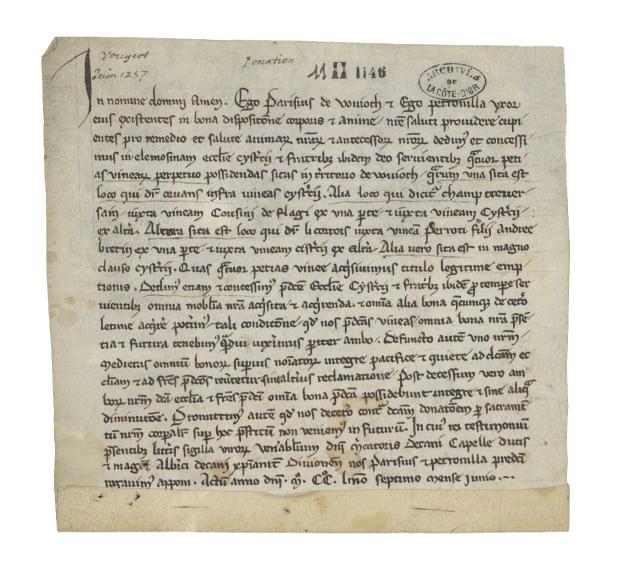 Vougeot
Juin 1257
Donation
11 H 1146
ARCHIVES
DE
LA CÔTE-D'OR
In nomine domini Amen. Ego Parisius de Vouioch et Ego petronilla uxor
eius existentes in bona dispositione corporis et anime nre saluti providere cupi
entes pro remedio et salute animar nrar et antecessor nror dedim et concessi
mus in elemosinam ecclie cysterc et fratribus ibidem deo servientibus quatuor peci
as vinear perpetuo possidendas sitas in territorio de vouioch quarum una sita est
loco qui dr cruans infra vineas cysterc. Alia loco qui dicit champ traver
sain iuxta vineam Cousini de flagi ex una parte et iuxta vineam Cysterc
ex alta. Altera sita est loco qui dr li cortois iuxta vinea perroti filii andree
bretin ex una parte et iuxta vineam cisterc ex alta. Alia vero sita est in magno
clauso cysterc. Quas quatuor petias vinee acquisivimus titulo legitime emp
tionis. Dedim etiam et concessim pdce Ecclie Cysterc et fratribus ibide pro tempore ser
vientibus omnia mobilia nra acquisita et acquirenda et omnia alia bona quecumque de cetero
acquire poterim tali conditione qd nos pdcas vineas omnia bona nra presen
tia et futura tenebim quadiu vixerimus pariter ambo. Defuncto aute uno nrm
medietas omnium bonor superius notator integre pacifice et quiete ad dcam ec
cliam et ad fres pdcos revertetur sine alterius reclamatione. Post decessum vero am
bor nrm dca ecclia et fres pdci omnia bona pdca possidebunt integre et sine aliqua
diminutione. Promittim aute qd nos de cetero contra dcam donatoem per sacramen
tu nrm corporalr super hoc prestitu non veniem in futuru. In cui rei testimonium
presentibus litteris sigilla viror venerabilium dni decani Capelle ducis
et magri Alberici decani xpianit Divionen nos Parisius et petronilla predicti
rogavim apponi. Actu anno dni M. CC. L septimo mense iunio.